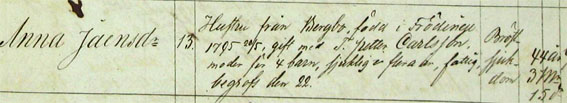 Anna Jaensdr
13.
Hustru från Bergbo, född i Frödinge
1795 20/5, gift med S. Petter Carlsson,
moder för 4 barn, sjuklig i flera år, fattig,
begrofs den 22.
Bröst
sjuk
dom
44 år
3 Mr
15 d